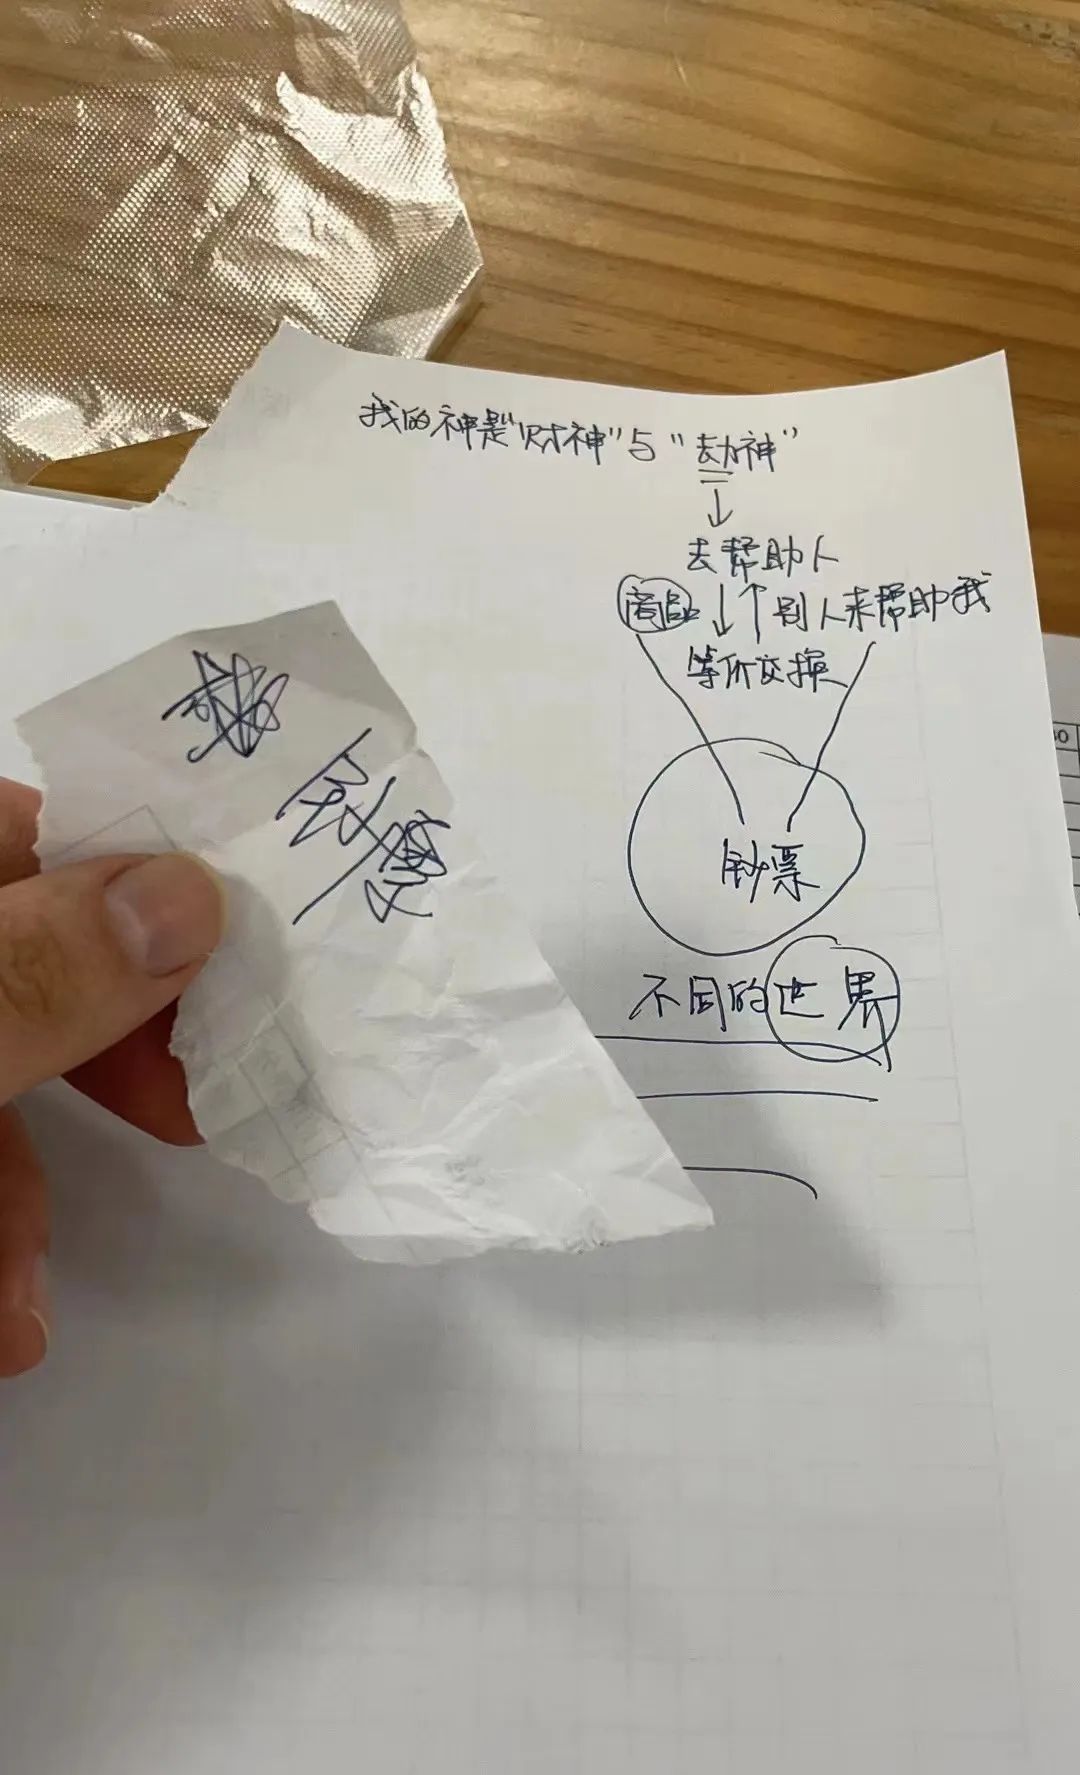 我的神是"财神"与"劫神"
去帮助人
商品 别人来帮助我
等价交换
钞票
不同的世界